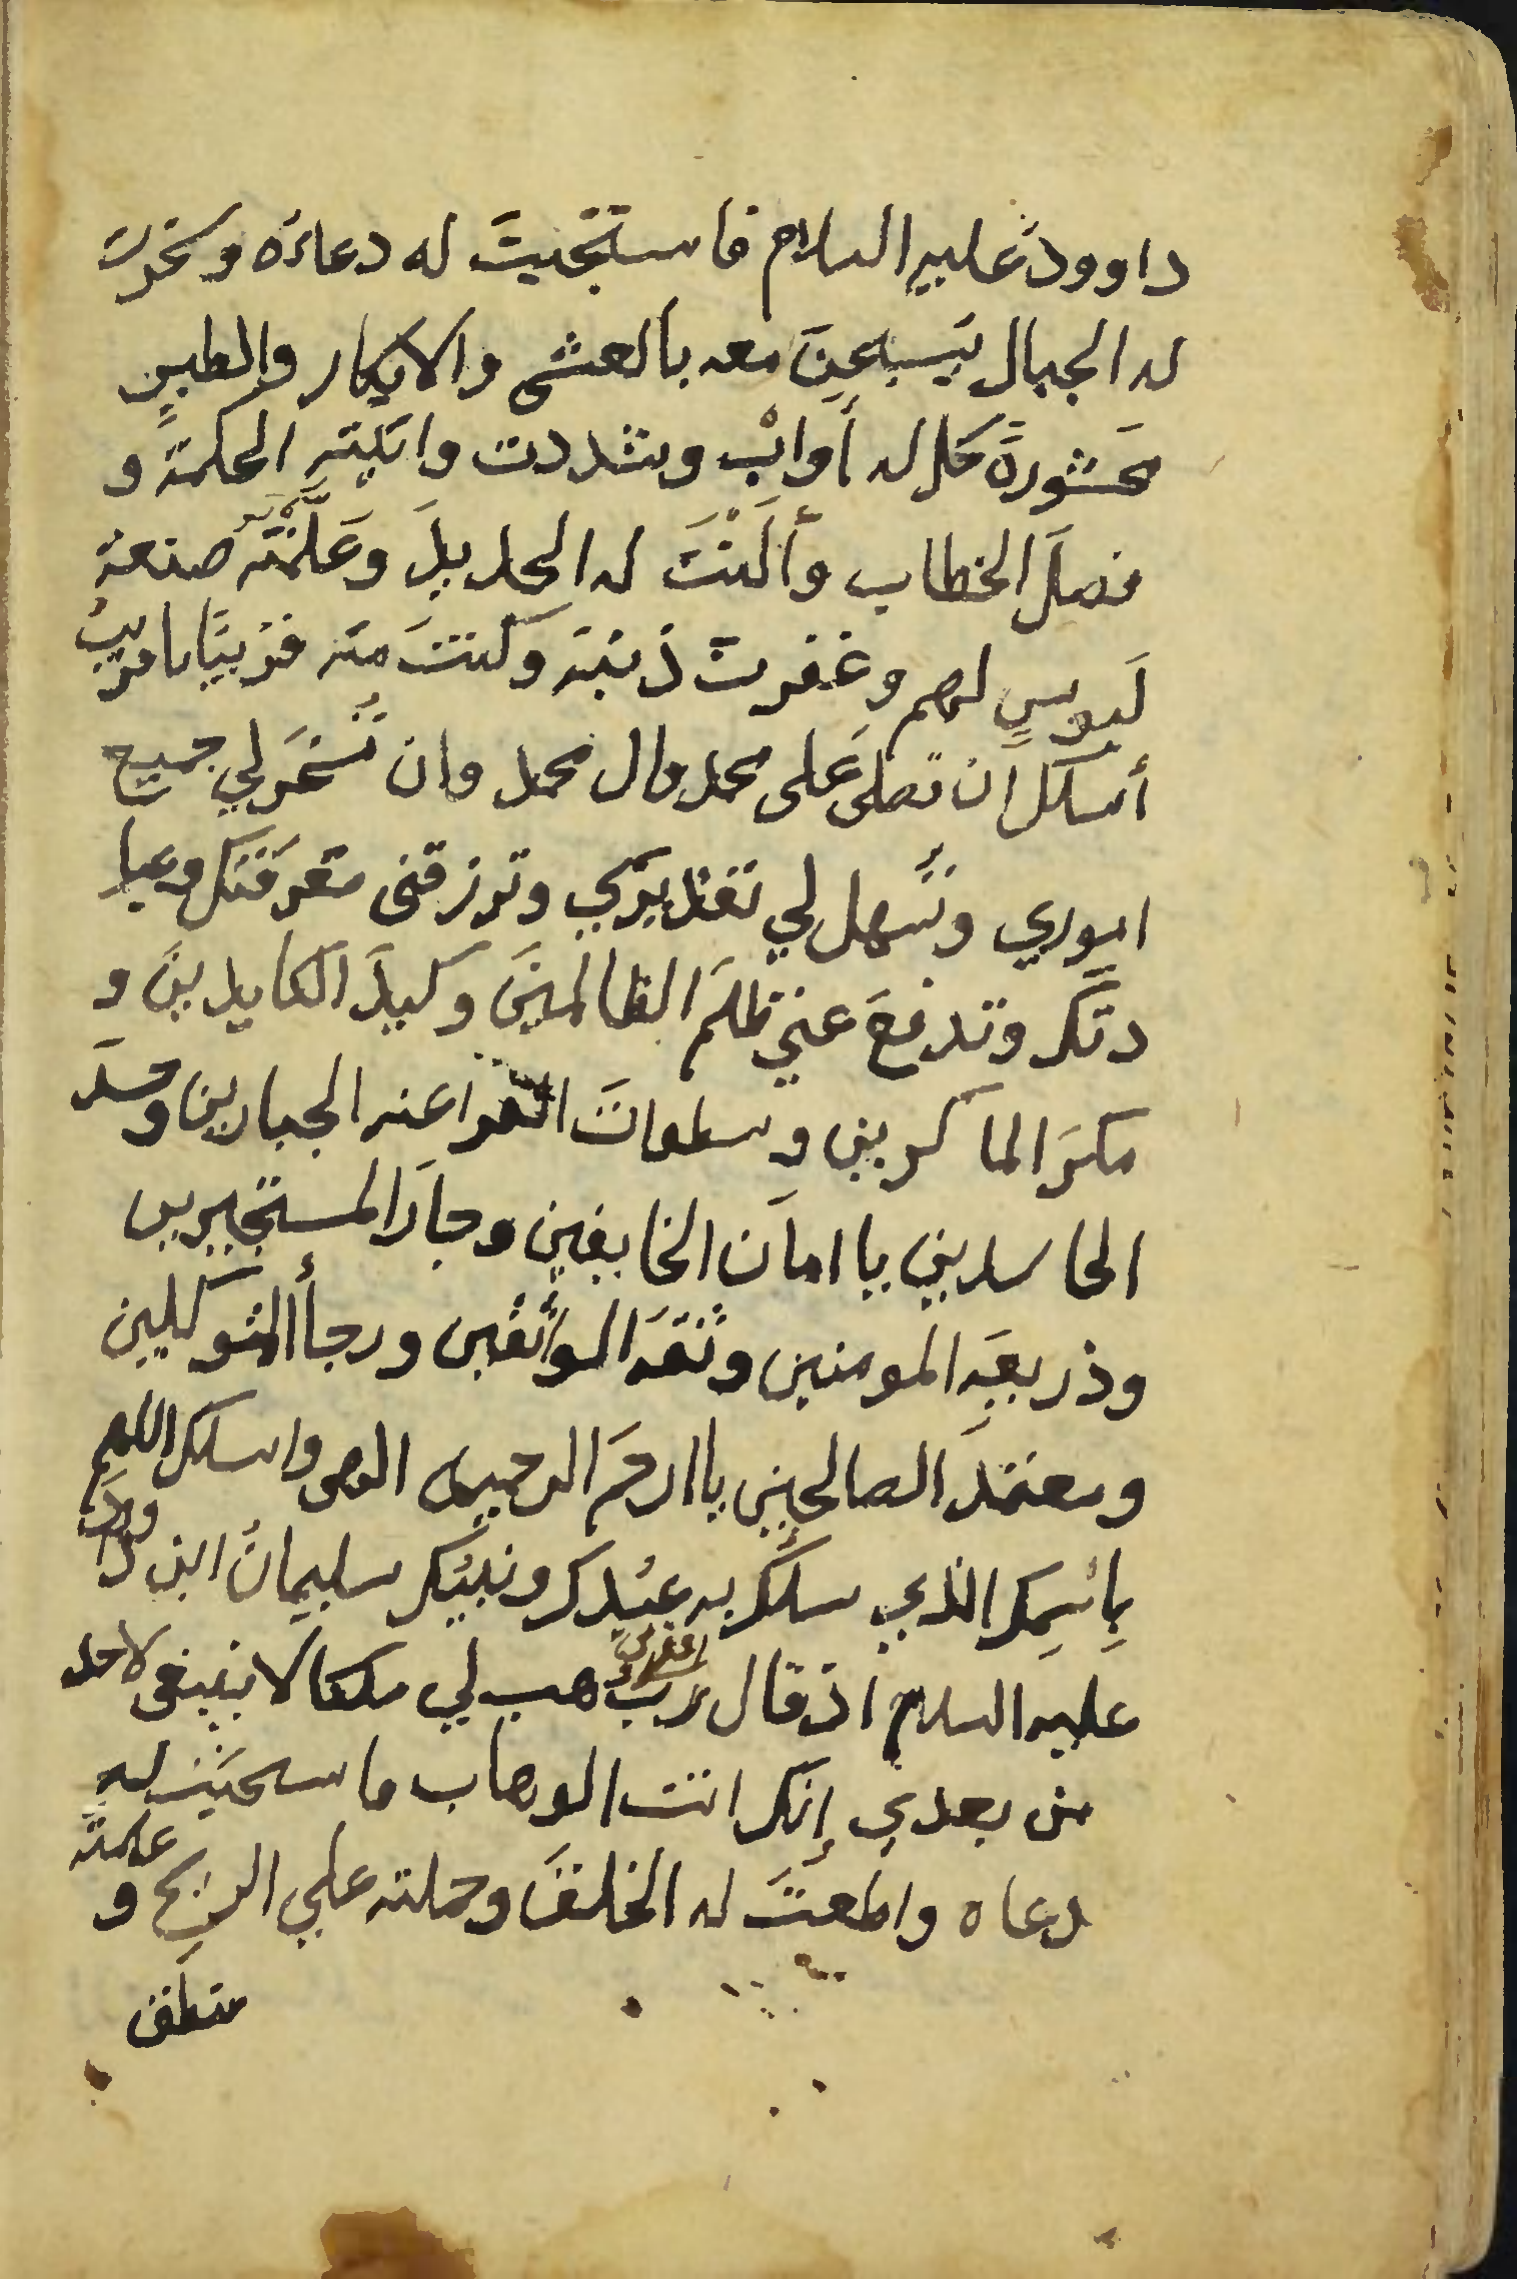 داوودَ عليه السلام فاستجيتَ له دعاءَه وسخرتَ
له الجبال يَسبحنَ معه بالعشي والابكار والطيرِ
محَشورةً كل له أوابْ وشددت واتيته الحكمة و
فصلَ الخطاب وألَنْتَ له الحديدَ وَعَلَّمْتَه صنعة
لَبوسٍ لهم وغفرت ذنبَه وَكنتَ منه قريبًا يا قريبُ
أسلك ان تصلى عَلى محمد وال محمد وان تُسَخرَلي جميع
اموري وتُسَهل لي تقديري وترزقني مَعرفَتك وعبا
دتَك وتدفعَ عني ظلمَ الظالمينَ وكيدَ الكايدينَ و
مكرَ الماكرين وسطواتَ الفراعنه الجبارين وحسدَ
الحاسدين يا امانَ الخايفين وجارَ المستجيرين
وذريعةِ المومنين وثقةَ الواثقين ورجاأ المتوكلين
ومعتمدَ الصالحين يا ارحمَ الرحمين الهى واسلك اللهم
بِاسْمِك الذي سلَك به عبْدك ونبيُك سليمانُ ابن داوودَ
عليه السلام اذ قال رب اغفرلي وهب لي ملكا لا ينبغى لاحد
من بعدي إنك انت الوهاب فاستجبتَ له
دعاه واطعتَ له الخلقَ وحملته علي الريح و علمته
منطق